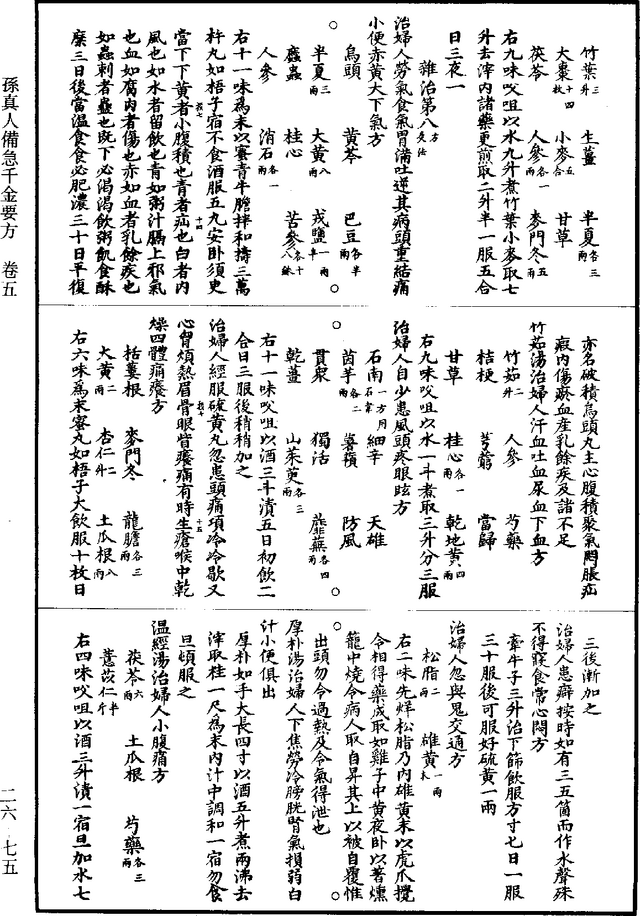 竹葉三升　生薑　半夏各三兩
大棗十四枚　小麥五合　甘草
茯苓　人參各一兩　麥門冬五兩
右九味㕮咀以水九升煮竹葉小麥取七
升去滓內諸藥更煎取二升半一服五合
日三夜一
雜治第八
治婦人勞氣食氣胃滿吐逆其病頭重結痛
小便赤黃大下氣方
烏頭　黃芩　巴豆各半兩
半夏三兩　大黃八兩　戎鹽一兩半
䗪蟲　桂心　苦參各十八銖
人參　消石各一兩
右十一味為末以蜜青牛膽拌和擣三萬
杵丸如梧子宿不食酒服五丸安臥須臾
當下下黃者小腹積也青者疝也白者內
風也如水者留飲也青如粥汁膈上邪氣
也血如腐肉者傷也赤如血者乳餘疾也
如蟲刺者蠱也既下必渴渴飲粥飢食酥
糜三日後當溫食食必肥濃三十日平復
亦名破積烏頭丸主心腹積聚氣悶脹疝
瘕內傷瘀血產乳餘疾及諸不足
竹茹湯治婦人汗血吐血尿血下血方
竹茹二升　人參　芍藥
桔梗　芎藭　當歸
甘草　桂心各一兩　乾地黃四兩
右九味㕮咀以水一斗煮取三升分三服
治婦人自少患風頭疼眼眩方
石南一方用石韋　細辛　天雄
茵芋各二兩　薯蕷　防風
貫眾　獨活　蘼蕪各四兩
乾薑　山茱萸各三兩
右十一味㕮咀以酒三斗漬五日初飲二
合日三服後稍稍加之
治婦人經服硫黃丸忽患頭痛項冷冷歇又
心胷煩熱眉骨眼眥癢痛有時生瘡喉中乾
燥四體痛癢方
栝蔞根　麥門冬　龍膽各三兩
大黃二兩　杏仁二升　土瓜根八兩
右六味為末蜜丸如梧子大飲服十枚日
三後漸加之
治婦人患癖按時如有三五箇而作水聲殊
不得寢食常心悶方
牽牛子三升治下篩飲服方寸七日一服
三十服後可服好硫黃一兩
治婦人忽與鬼交通方
松脂二兩　雄黃一兩末
右二味先烊松脂乃內雄黃末以虎爪攪
令相得藥成取如雞子中黃夜臥以著燻
籠中燒令病人取自昇其上以被自覆惟
出頭勿令過熱及令氣得泄也
厚朴湯治婦人下焦勞冷膀胱腎氣損弱白
汁小便俱出
厚朴如手大長四寸以酒五升煮兩沸去
滓取桂一尺為末內汁中調和一宿勿食
旦頓服之
溫經湯治婦人小腹痛方
茯苓六兩　土瓜根　芍藥各三兩
薏苡仁半斤
右四味㕮咀以酒三升漬一宿旦加水七
孫真人備急千金要方　卷五
二六　七五